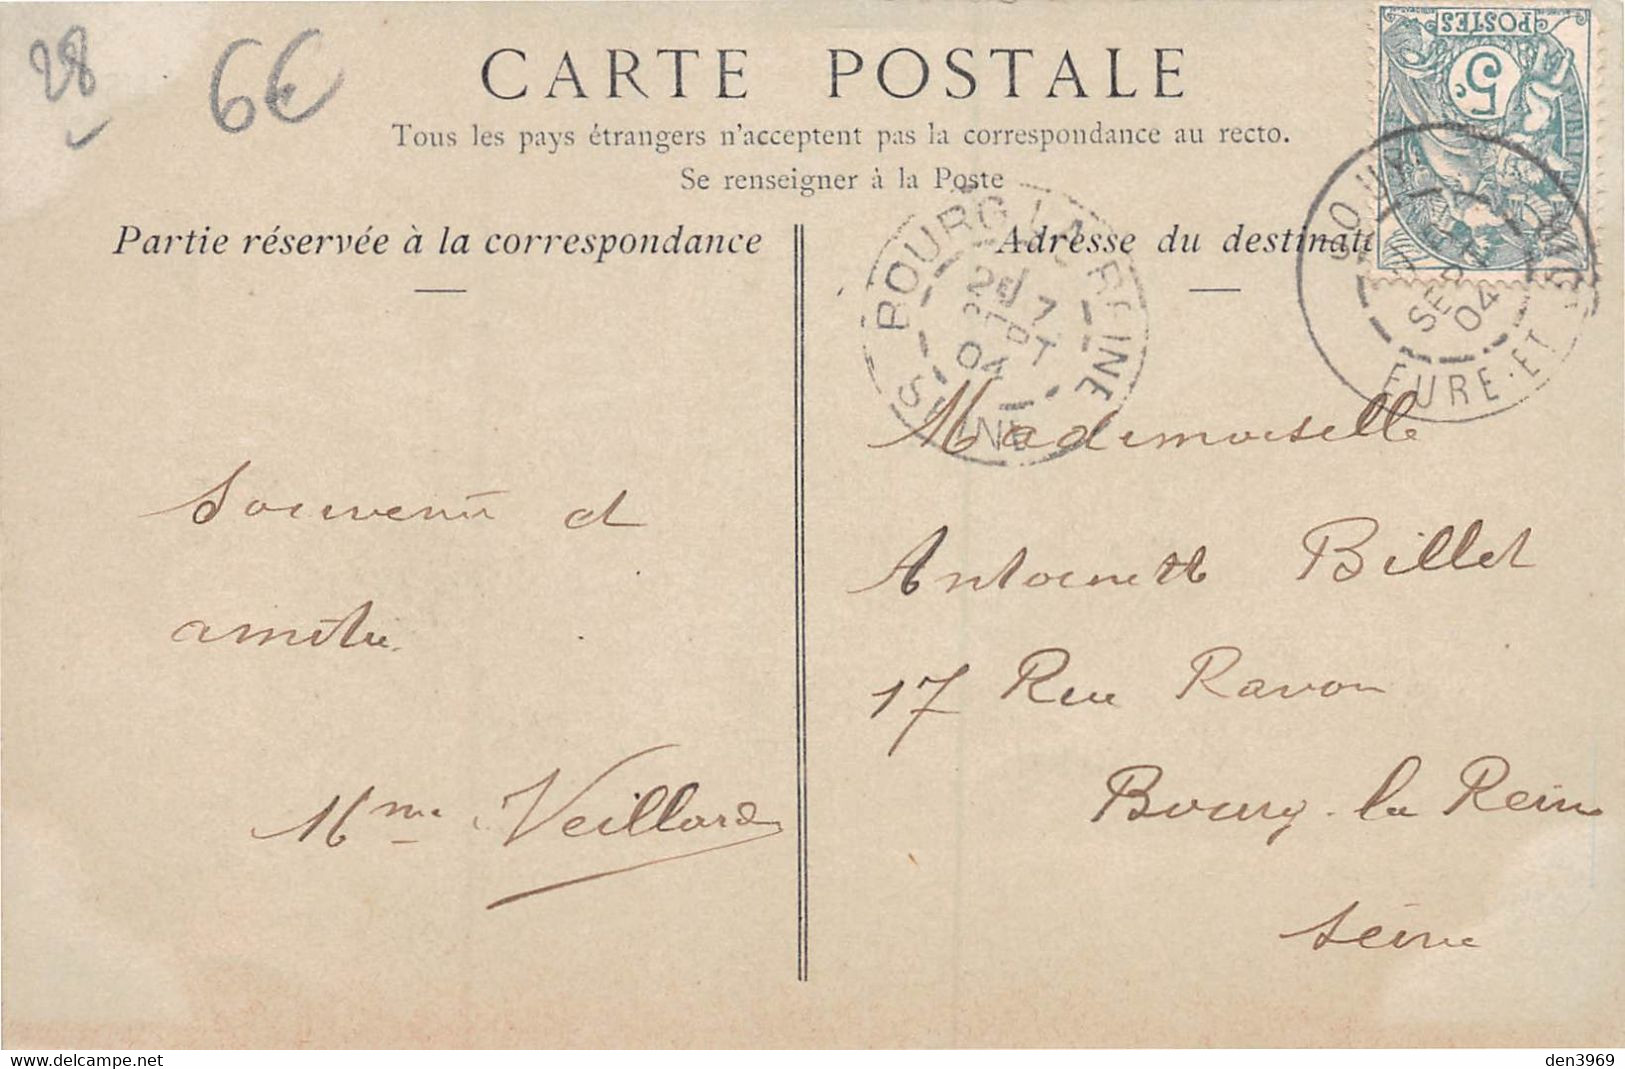 28
6€
CARTE POSTALE
Tous les pays étrangers n'acceptent pas la correspondance au recto.
Se renseigner à la Poste
Partie réservée à la correspondance
Adresse du destinat
POSTES
5c
BOURG LA REINE
2E / 7
SEPT
04
SEINE
SEPT
04
EURE-ET
Souvenir et
amitié
Mme Veillard
Mademoiselle
Antoinette Billet
17 Rue Ravon
Bourg-la Reine
Seine
delcampe.net
den3969